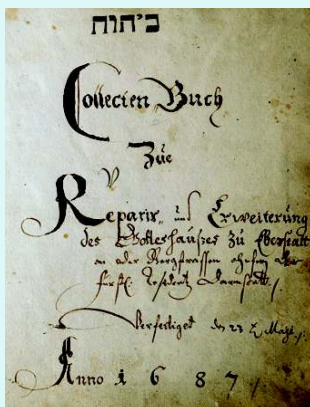 ביהוה
Collecten Buch
Zue
Reparir- und Erweiterung
des Gotteshaußes zu Eberstatt
an der Bergstrassen ohnfern der
fürstl. Residentz Darmstatt
Verfertiget den 22 Maji
Anno 1687